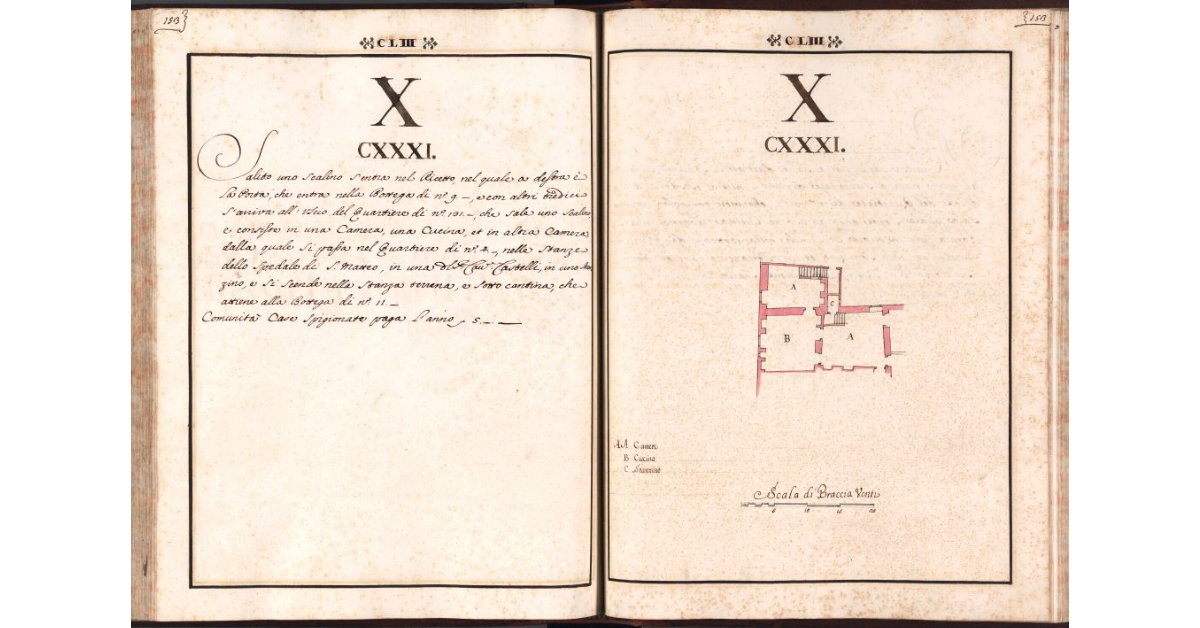 153
CLIII
X
CXXXI.
Salito uno scalino s'entra nel Ricetto, nel quale a destra è
la Porta, che entra nella Bottega di n.º 9 –, e con altri tredici
s'arriva all' Uscio del Quartiere di n.º 131. –, che sale uno scalino,
e consiste in una Camera, una Cucina, et in altra Camera,
dalla quale si passa nel Quartiere di n.º 4. –, nelle stanze
dello Spedale di S. Matteo, in una del Cav.r Castelli, in uno
zino, e si scende nella stanza terrena, e sotto cantina, che
attiene alla Bottega di n.º 11. –
Comunità Case spigionate paga l'anno 5. –
153
CLIII
X
CXXXI.
A
C
B
A
AA Camere
B Cucina
C
Scala di Braccia Venti
5 10 15 20